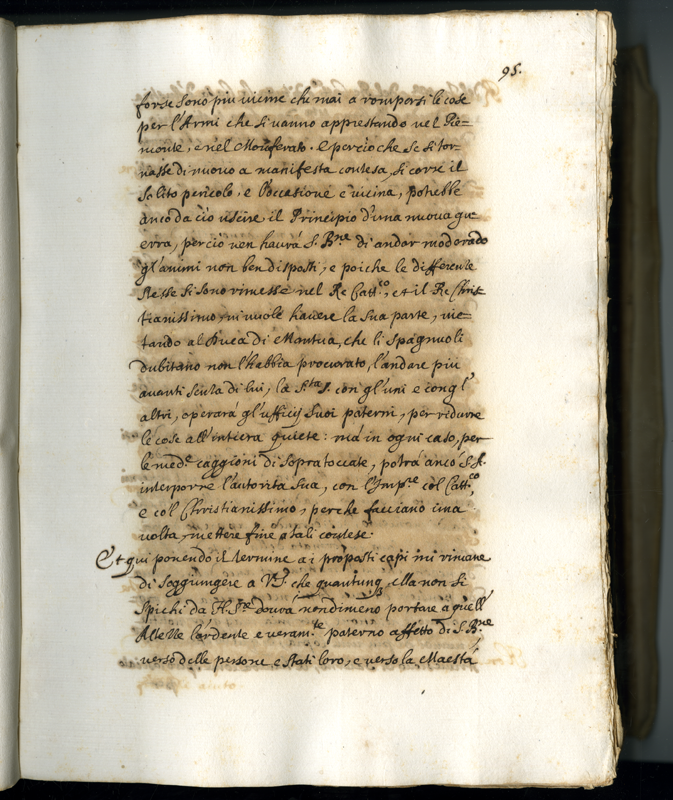 95.
forse sono piu vicine che mai a rompersi le cose
per l'Armi che si vanno apprestando nel Pie=
monte, e nel Monferato. E percioche se si tor=
nasse di nuovo a manifesta contesa, si corre il
solito pericolo, e l'occasione e vicina, potrebbe
anco da cio uscire il Principio d'una nuova gu
erra, percio non havrà S. Bne di andar moderado
gl'animi non ben disposti, e poiche le differente
stesse si sono rimesse nel Re Catt.co, et il Re Christ
tianissimo, vi vuole havere la sua parte, vie=
tando al Duca di Mantua, che li Spagnuoli
dubitano non l'habbia procurato, l'andare piu
avanti senza di lui, la S.ta S. con gl'uni e con gl'
altri, operarà gl'ufficij suoi paterni, per ridurre
le cose all'intiera quiete: mà in ogni caso, per
le med.e caggioni di sopra toccate, potrà anco S. A.
interporre l'autorita sua, con l'Imp.re col Catt.co,
e col Christianissimo, perche facciano una
volta mettere fine a tali contese.
Et qui ponendo il termine a i proposti capi mi rimane
di soggiungere a V.S. che quantunq ella non si
spichi da N. S.re dovrà nondimeno portare à quell'
Altezze l'ardente e veram.te paterno affetto di S. B.ne
verso delle persone e stati loro, e verso la Maestà